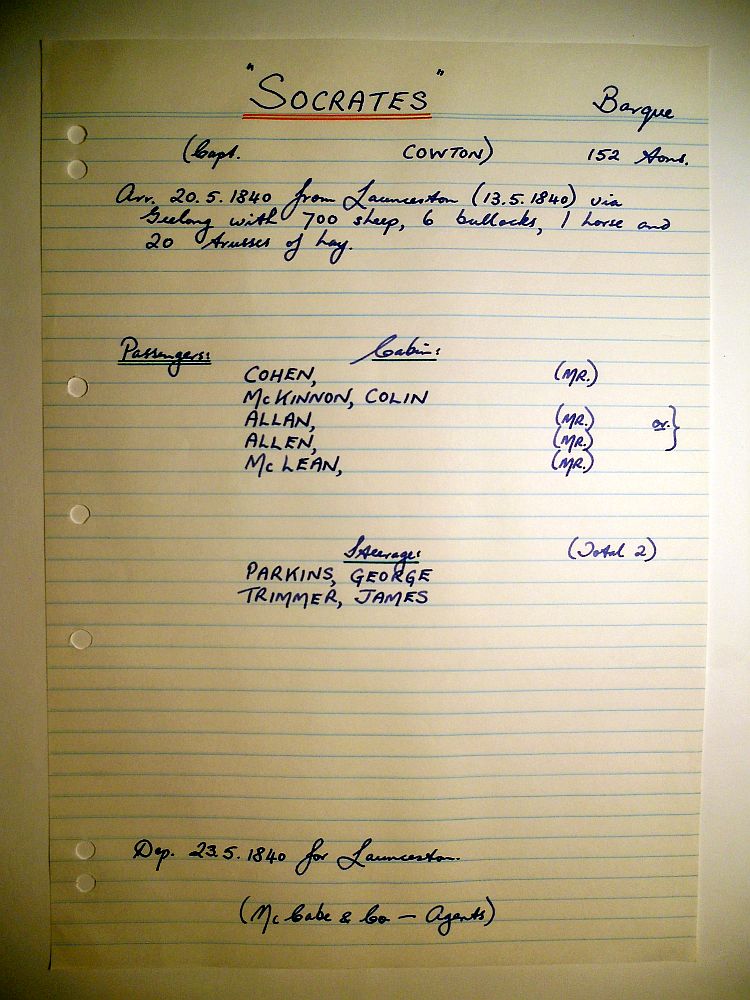 "SOCRATES" Barque
(Capt. COWTON) 152 Tons.
Arr. 20.5.1840 from Launceston (13.5.1840) via
Geelong with 700 sheep, 6 bullocks, 1 horse and
20 trusses of hay.
Passengers: Cabin:
COHEN, (MR.)
McKINNON, COLIN
ALLAN, (MR.) or }
ALLEN, (MR.)
McLEAN, (MR.)
Steerage: (Total 2)
PARKINS, GEORGE
TRIMMER, JAMES
Dep. 23.5.1840 for Launceston.
(McCabe & Co — Agents)